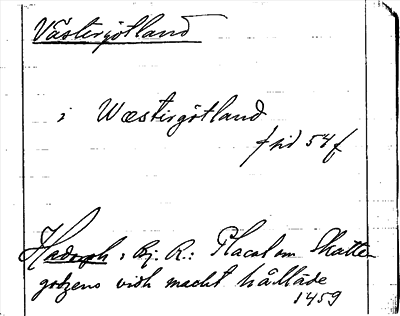 Västergötland
i Wæstirgötland
frid 54 f
Hadorph: Bj. R.: Placat om Skatte-
godzens vidh macht hållåde
1459